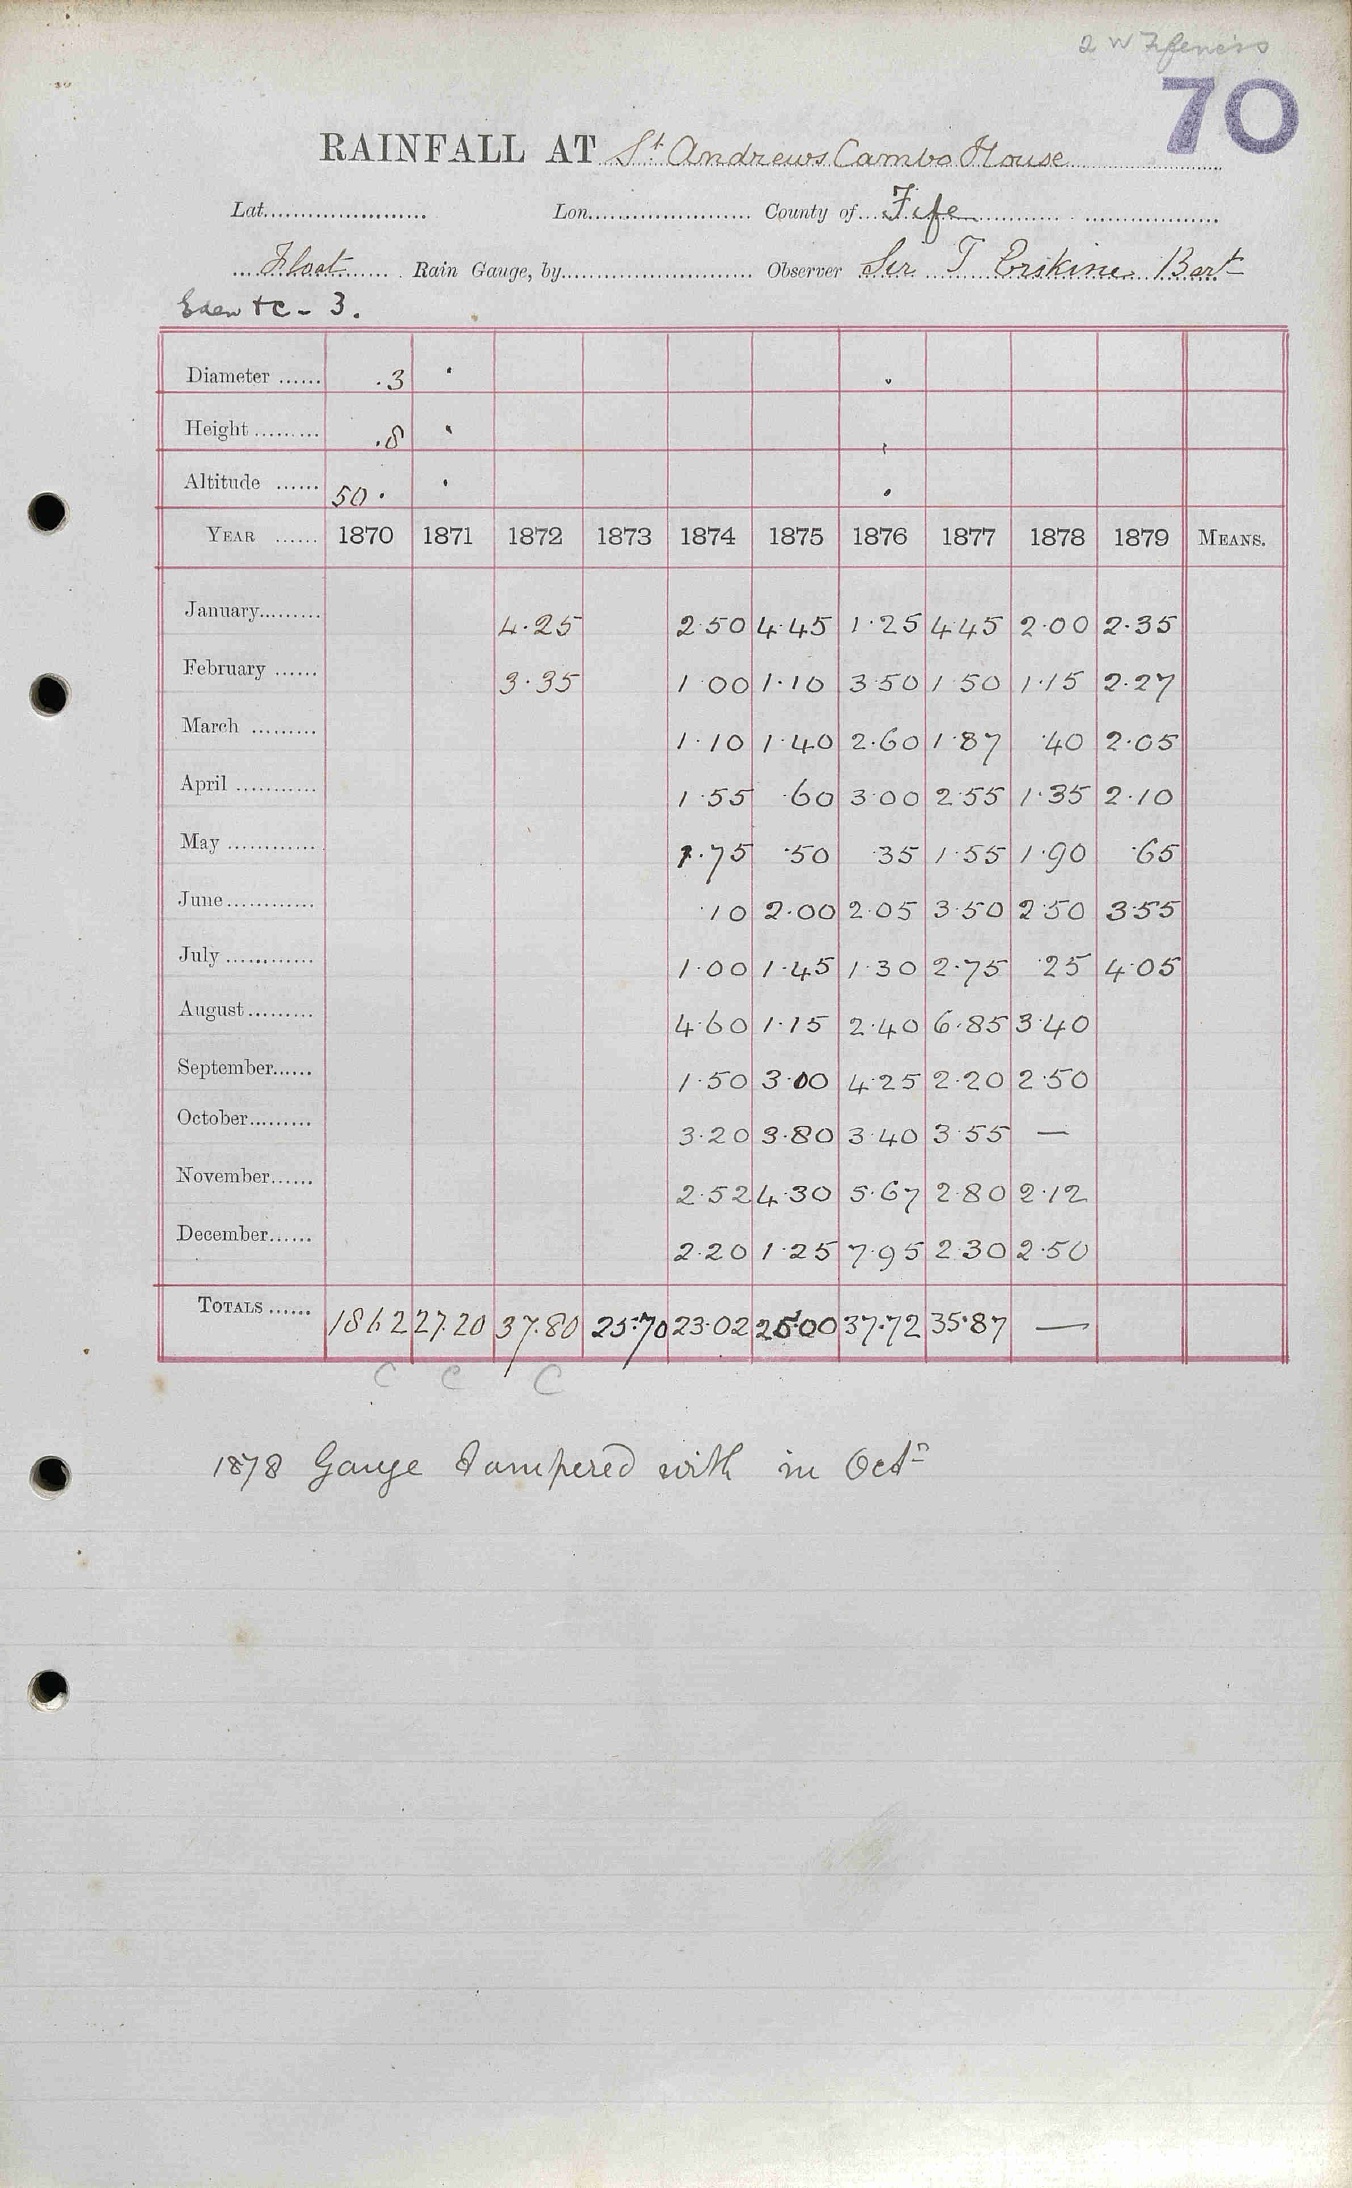 2 W Fifeness
70
RAINFALL AT St Andrews Cambo House
Lat. Lon. County of Fife
Float Rain Gauge, by Observer Sir T Erskine Bart
Eden &c - 3.
Diameter ...... .3
Height ......... .8
Altitude ...... 50.
YEAR ...... 1870 1871 1872 1873 1874 1875 1876 1877 1878 1879 MEANS.
January......... 4.25 2.50 4.45 1.25 4.45 2.00 2.35
February ...... 3.35 1.00 1.10 3.50 1.50 1.15 2.27
March ......... 1.10 1.40 2.60 1.87 .40 2.05
April ........... 1.55 .60 3.00 2.55 1.35 2.10
May ............ 1.75 .50 .35 1.55 1.90 .65
June............ .10 2.00 2.05 3.50 2.50 3.55
July ............ 1.00 1.45 1.30 2.75 .25 4.05
August......... 4.60 1.15 2.40 6.85 3.40
September...... 1.50 3.00 4.25 2.20 2.50
October......... 3.20 3.80 3.40 3.55 —
November...... 2.52 4.30 5.67 2.80 2.12
December...... 2.20 1.25 7.95 2.30 2.50
TOTALS ...... 27.20 37.80 25.70 23.02 25.00 37.72 35.87 —
C C C
1878 Gauge tampered with in Octr